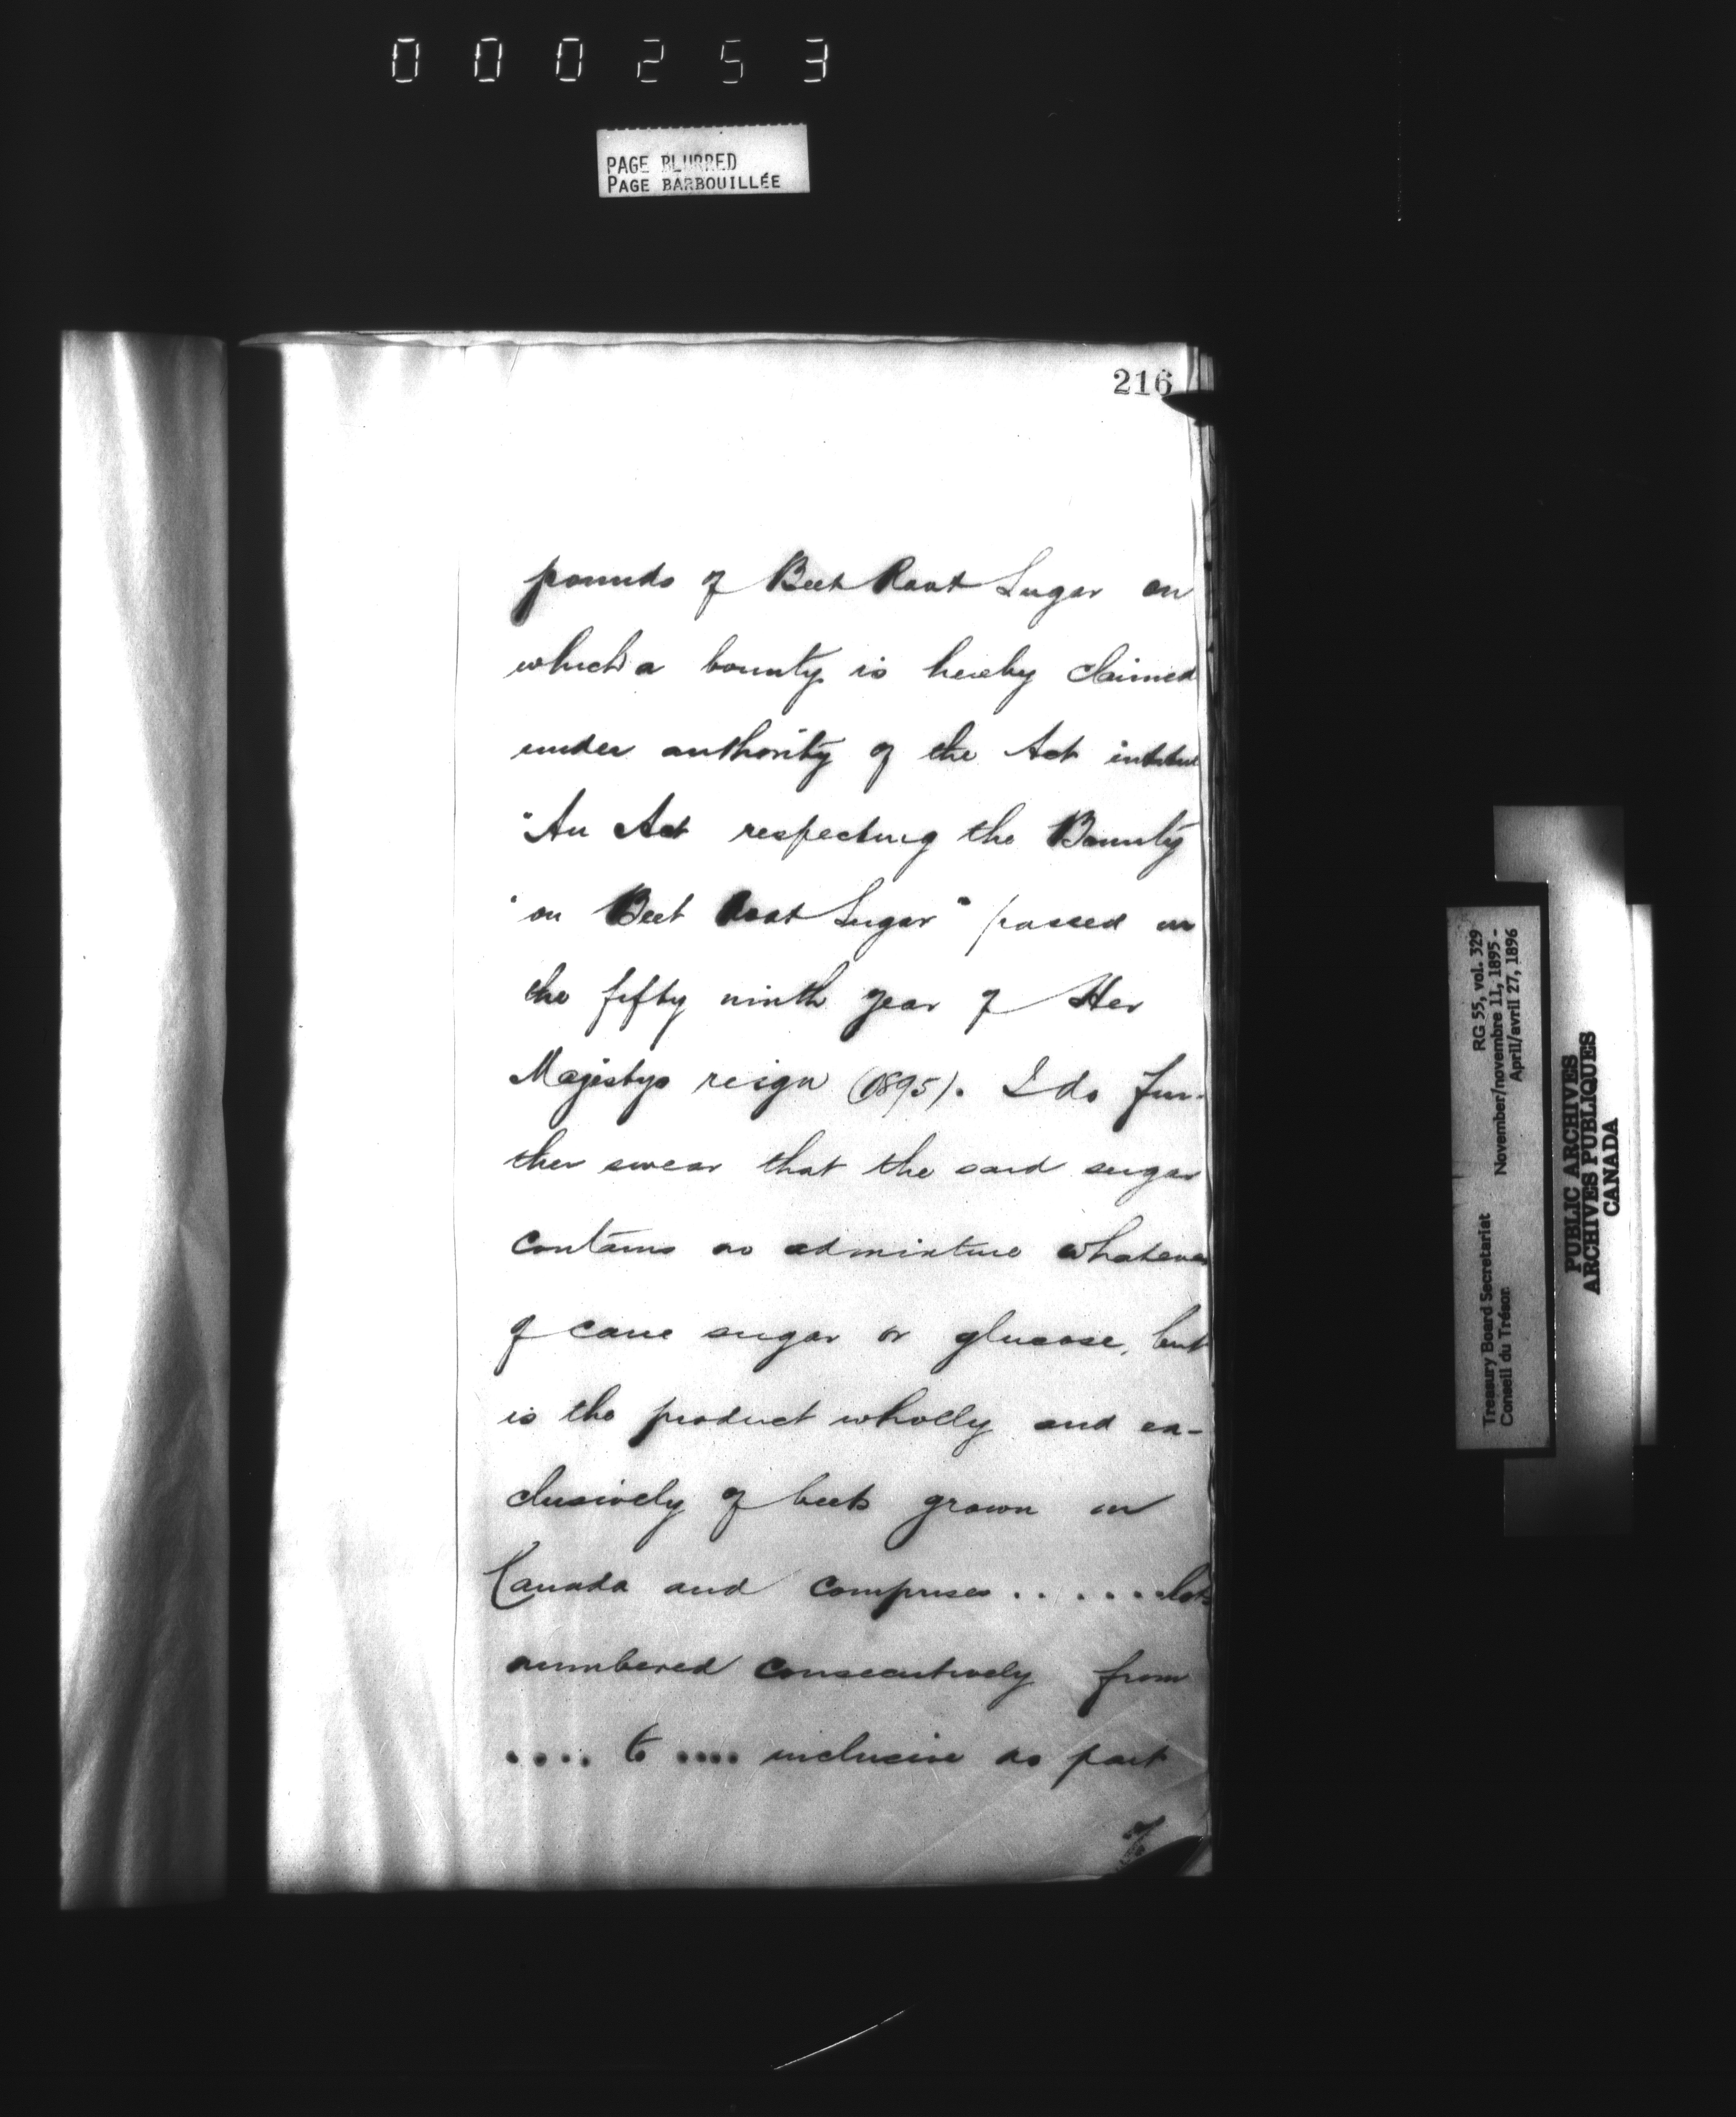 000253
PAGE BLURRED
PAGE BARBOUILLÉE
216
pounds of Beet Root Sugar on
which a bounty is hereby claimed
under authority of the Act intitul
"An Act respecting the Bounty
"on Beet Root Sugar" passed in
the fifty ninth year of Her
Majestys reign (1895). I do fur-
ther swear that the said sugar
contains no admixture whatever
of cane sugar or glucose, but
is the product wholly and ex-
clusively of beets grown in
Canada and comprises ...... lots
numbered consecutively from
.... to .... inclusive as part
of
RG 55, vol. 329
Treasury Board Secretariat November/novembre 11, 1895 -
Conseil du Trésor April/avril 27, 1896
PUBLIC ARCHIVES
ARCHIVES PUBLIQUES
CANADA